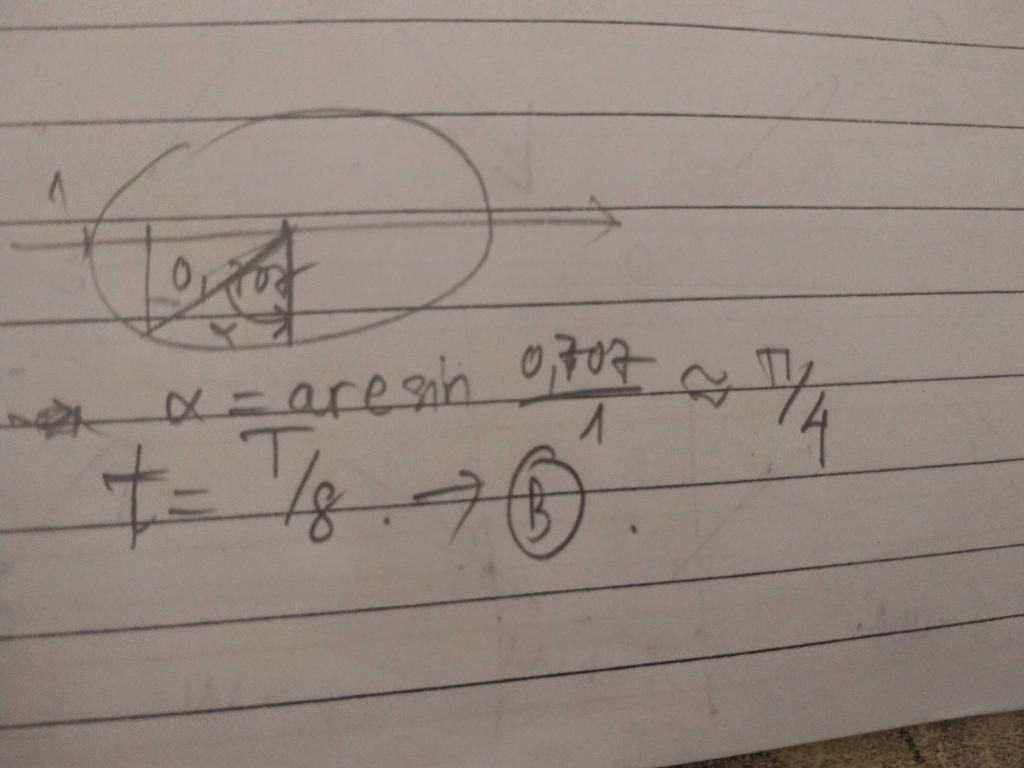 1
0,707
α
α = arcsin 0,707/1 ≈ π/4
t = T/8. → B.